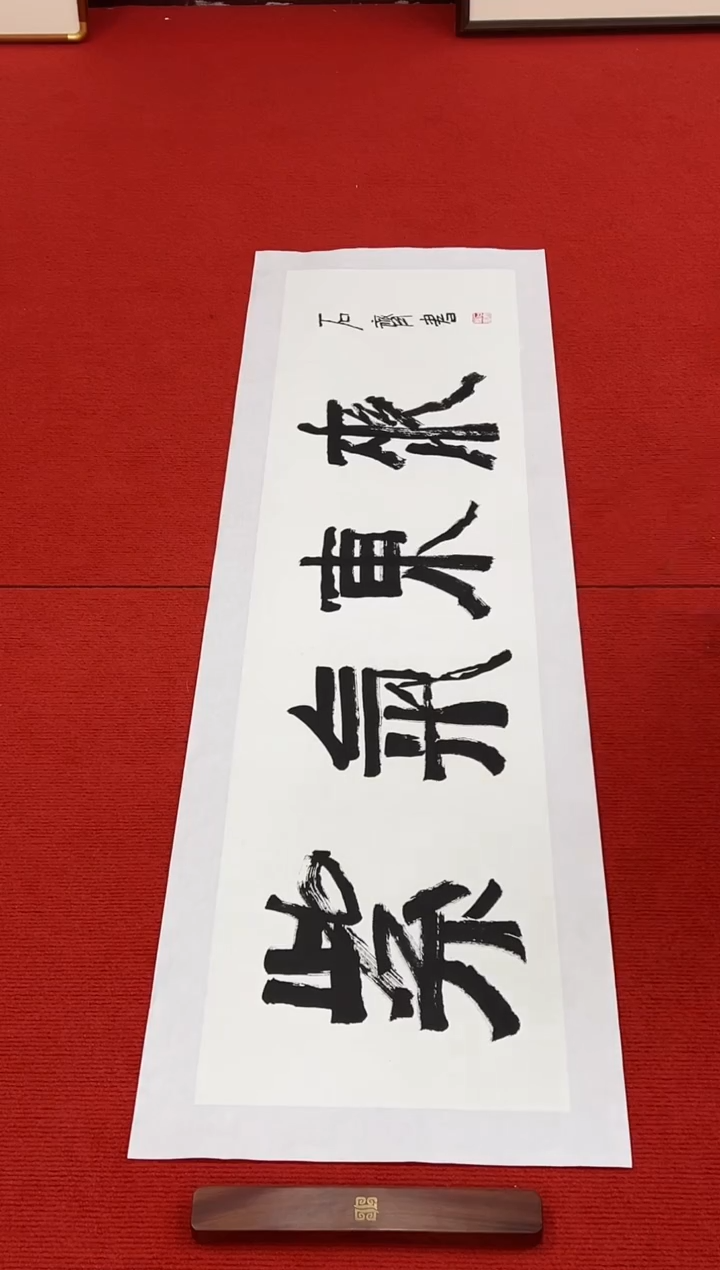 紫氣東來
石齋書